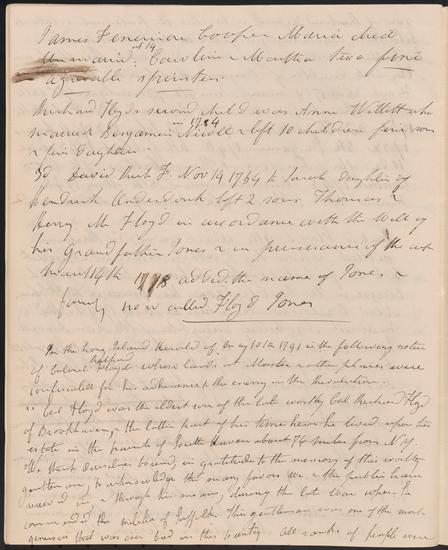 James Fenemore Cooper Maria died
unmarried at 14 Caroline & Martha two fine
agreeable spinsters
Richard Floyds second child was Anne Willett who
married Benjamin Nicoll in 1784 & left 10 children five sons
& five daughters
3d David Rich F. Nov 14 1764 to Sarah daughter of
Hendrick Onderdonk left 2 sons Thomas &
Henry M Floyd in accordance with the Will of
his Grandfather Jones & in pursuance of the act
14th 1788 added the name of Jones &
family now called Floyd Jones
In the Long Island Herald of May 10th 1791 is the following notice
of Colonel Richard Floyd whose lands at Mastic & other places were
confiscated for his adherence to the enemy in the Revolution.
" Col Floyd was the eldest son of the late worthy Col Richard Floyd
of Brookhaven, the latter part of his time here he lived upon his
estate in the parish of South Haven about 74 miles from N.Y.
We think Ourselves bound in gratitude to the memory of this worthy
gentleman, to acknowledge the many favors we & the public have
received in & through his means, during the last War when he
commanded the militia of Suffolk This gentleman was one of the most
generous that was ever bred in this County. All ranks of people were